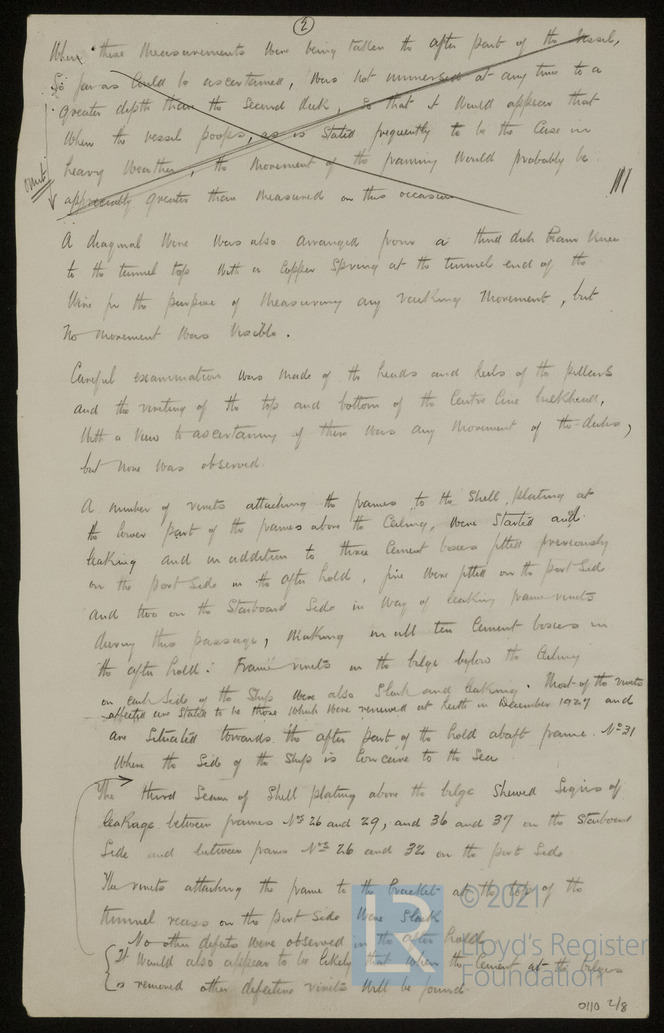 2
When these measurements were being taken the after part of the vessel,
so far as could be ascertained, was not immersed at any time to a
greater depth than the second deck, so that it would appear that
when the vessel poops, as is stated frequently to be the case in
heavy weather, the movement of the framing would probably be
omit
appreciably greater than measured on this occasion
A diagonal wire was also arranged from a third deck beam knee
to the tunnel top with a copper spring at the tunnel end of the
wire for the purpose of measuring any racking movement, but
no movement was visible.
Careful examination was made of the heads and heels of the pillars
and the riveting of the top and bottom of the centre line bulkhead,
with a view to ascertaining if there was any movement of the decks,
but none was observed.
A number of rivets attaching the frames to the shell plating at
the lower part of the frames above the ceiling, were started and
leaking and in addition to three cement boxes fitted previously
on the port side in the after hold, five were fitted on the port side
and two on the starboard side in way of leaking frame rivets
during this passage, making in all ten cement boxes in
the after hold. Frame rivets in the bilge below the ceiling
on each side of the ship were also slack and leaking. Most of the rivets
affected are stated to be those which were renewed at Leith in December 1927 and
are situated towards the after part of the hold abaft frame Nº 31
where the side of the ship is concave to the sea
The third seam of shell plating above the bilge shewed signs of
leakage between frames Nºs 26 and 29, and 36 and 37 on the starboard
side and between frames Nºs 26 and 32 on the port side
The rivets attaching the frame to the bracket at the top of the
tunnel recess on the port side were slack
No other defects were observed in the after hold
It would also appear to be likely that when the cement at the bilges
is removed other defective rivets will be found.
© 2021
LR
Lloyd's Register
Foundation
0110 2/8